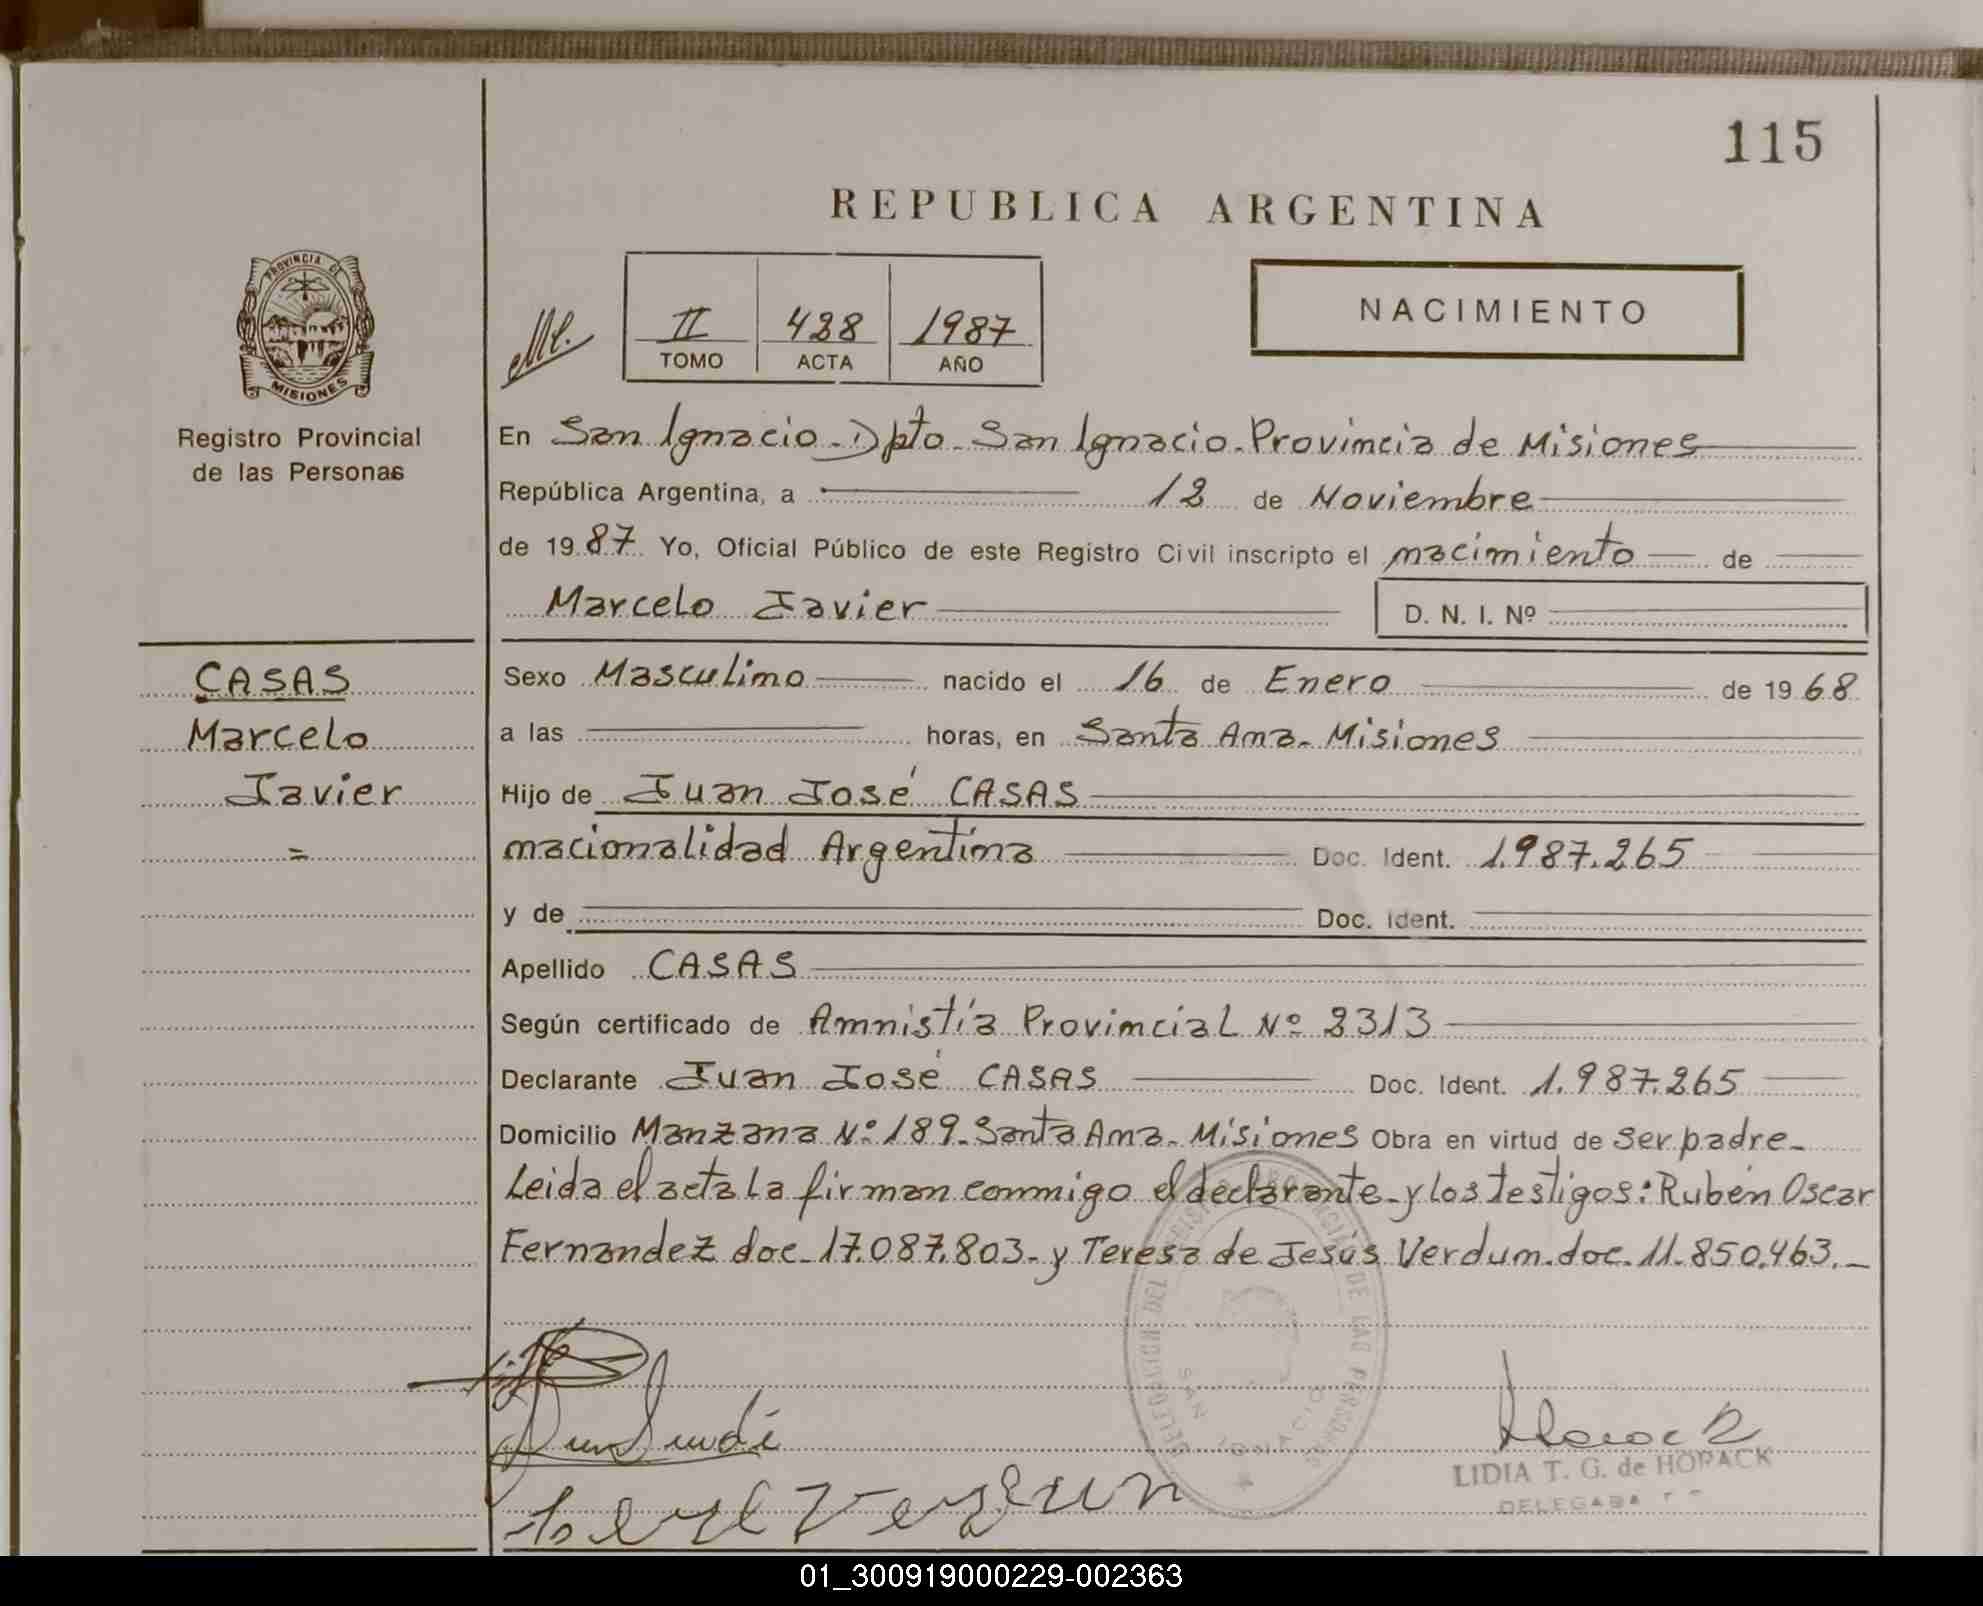 115
REPUBLICA ARGENTINA
PROVINCIA DE
MISIONES
Registro Provincial
de las Personas
II 428 1987
TOMO ACTA AÑO
NACIMIENTO
En San Ignacio - Dpto. San Ignacio - Provincia de Misiones
República Argentina, a 12 de Noviembre
de 1987 Yo, Oficial Público de este Registro Civil inscripto el nacimiento de
Marcelo Javier D. N. I. Nº
CASAS
Marcelo
Javier
=
Sexo Masculino nacido el 16 de Enero de 1968
a las horas, en Santa Ana - Misiones
Hijo de Juan José CASAS
nacionalidad Argentina Doc. Ident. 1.987.265
y de Doc. Ident.
Apellido CASAS
Según certificado de Amnistía Provincial Nº 2313
Declarante Juan José CASAS Doc. Ident. 1.987.265
Domicilio Manzana Nº 189 - Santa Ana - Misiones Obra en virtud de ser padre -
Leida el acta la firman conmigo el declarante - y los testigos: Rubén Oscar
Fernandez doc - 17.087.803 - y Teresa de Jesús Verdum. doc. 11.850.463. -
DELEGACION DEL REGISTRO PROVINCIAL DE LAS PERSONAS
SAN IGNACIO
LIDIA T. G. de HOPACK
DELEGADA
01_300919000229-002363